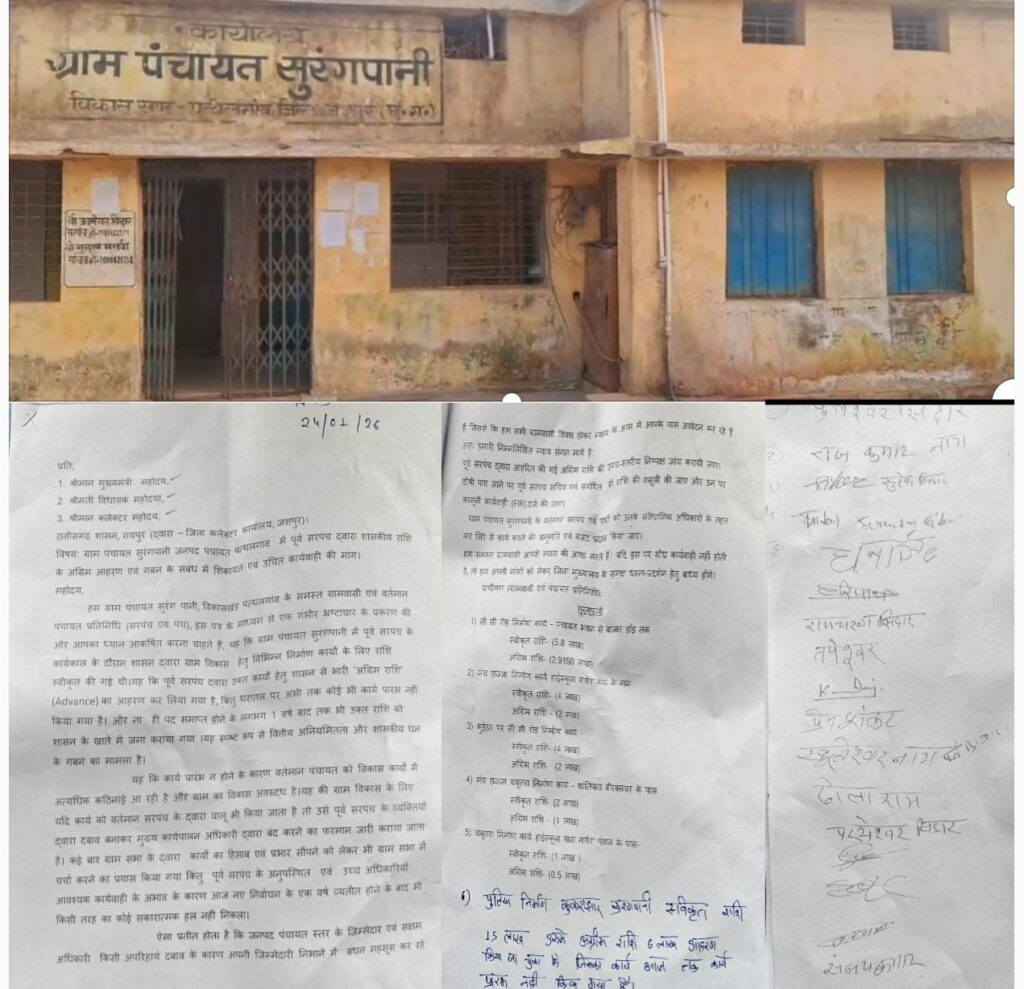 कार्यालय
ग्राम पंचायत सुरंगपानी
विकास खण्ड - पत्थलगांव, जिला
24/01/26
प्रति,
1. श्रीमान मुख्यमंत्री महोदय,
2. श्रीमती विधायक महोदया,
3. श्रीमान कलेक्टर महोदय,
छत्तीसगढ़ शासन, रायपुर (द्वारा – जिला कलेक्टर कार्यालय, जशपुर)।
विषय: ग्राम पंचायत सुरंगपानी जनपद पंचायत पत्थलगांव में पूर्व सरपंच द्वारा शासकीय राशि
के अग्रिम आहरण एवं गबन के संबंध में शिकायत एवं उचित कार्यवाही की मांग।
महोदय,
हम ग्राम पंचायत सुरंग पानी, विकासखंड पत्थलगांव के समस्त ग्रामवासी एवं वर्तमान
पंचायत प्रतिनिधि (सरपंच एवं पंच), इस पत्र के माध्यम से एक गंभीर भ्रष्टाचार के प्रकरण की
ओर आपका ध्यान आकर्षित करना चाहते हैं, यह कि ग्राम पंचायत सुरंगपानी में पूर्व सरपंच के
कार्यकाल के दौरान शासन द्वारा ग्राम विकास हेतु विभिन्न निर्माण कार्यों के लिए राशि
स्वीकृत की गई थी।यह कि पूर्व सरपंच द्वारा उक्त कार्यों हेतु शासन से भारी 'अग्रिम राशि'
(Advance) का आहरण कर लिया गया है, किंतु धरातल पर अभी तक कोई भी कार्य प्रारंभ नहीं
किया गया है। और ना ही पद समाप्त होने के लगभग 1 वर्ष बाद तक भी उक्त राशि को
शासन के खाते में जमा कराया गया।यह स्पष्ट रूप से वित्तीय अनियमितता और शासकीय धन
के गबन का मामला है।
यह कि कार्य प्रारंभ न होने के कारण वर्तमान पंचायत को विकास कार्यों में
अत्यधिक कठिनाई आ रही है और ग्राम का विकास अवरुद्ध है।यह की ग्राम विकास के लिए
यदि कार्य को वर्तमान सरपंच के द्वारा चालू भी किया जाता है तो उसे पूर्व सरपंच के व्यक्तियों
द्वारा दबाव बनाकर मुख्य कार्यपालन अधिकारी द्वारा बंद करने का फरमान जारी कराया जाता
है। कई बार ग्राम सभा के द्वारा कार्यों का हिसाब एवं प्रभार सौंपने को लेकर भी ग्राम सभा में
चर्चा करने का प्रयास किया गया किंतु पूर्व सरपंच के अनुपस्थित एवं उच्च अधिकारियों
आवश्यक कार्यवाही के अभाव के कारण आज नए निर्वाचन के एक वर्ष व्यतीत होने के बाद भी
किसी तरह का कोई सकारात्मक हल नहीं निकला।
ऐसा प्रतीत होता है कि जनपद पंचायत स्तर के जिम्मेदार एवं सक्षम
अधिकारी किसी अपरिहार्य दबाव के कारण अपनी जिम्मेदारी निभाने में बंधन महसूस कर रहे
है जिससे कि हम सभी ग्रामवासी विवश होकर न्याय के आस में आपके पास आवेदन कर रहे हैं
अतः हमारी निम्नलिखित न्याय संगत मांगे हैं:
पूर्व सरपंच द्वारा आहरित की गई अग्रिम राशि की उच्च-स्तरीय निष्पक्ष जांच करायी जाए।
दोषी पाए जाने पर पूर्व सरपंच सचिव एवं संबंधित से राशि की वसूली की जाए और उन पर
कानूनी कार्यवाही (FIR) दर्ज की जाए।
ग्राम पंचायत सुरंगपानी के वर्तमान सरपंच एवं पंचों को उनके संवैधानिक अधिकारों के तहत
नए सिरे से कार्य करने की अनुमति एवं बजट प्रदान किया जाए।
हम समस्त ग्रामवासी आपसे न्याय की आशा करते हैं। यदि इस पर शीघ्र कार्यवाही नहीं होती
है, तो हम अपनी मांगों को लेकर जिला मुख्यालय के समक्ष धरना-प्रदर्शन हेतु बाध्य होंगे।
प्रार्थीगण (ग्रामवासी एवं पंचायत प्रतिनिधि):
सुरंगपानी
1) सी सी रोड निर्माण कार्य - पंचायत भवन से बाजार डांड़ तक
स्वीकृत राशि- (5.8 लाख)
अग्रिम राशि- (2.9150 लाख)
2) मंच छज्जा निर्माण कार्य हाईस्कूल गणेश मंच के पास
स्वीकृत राशि- (4 लाख)
अग्रिम राशि - (2 लाख)
3) कुईहर पर सी सी रोड निर्माण कार्य -
स्वीकृत राशि- (4 लाख)
अग्रिम राशि - (2 लाख)
4) मंच छज्जा चबूतरा निर्माण कार्य - शांतिपारा बीरबलघर के पास
स्वीकृत राशि- (2 लाख)
अग्रिम राशि - (1 लाख)
5) चबूतरा निर्माण कार्य हाईस्कूल पारा गणेश पंडाल के पास-
स्वीकृत राशि- (1 लाख )
अग्रिम राशि- (0.5 लाख)
6) पुलिया निर्माण कुकरीझार सुरंगपानी स्वीकृत राशि
15 लाख उसमे अग्रीम राशि 6 लाख आहरण
किया जा चुका है जिसका कार्य आज तक कार्य
प्रारंभ नही किया गया है।
राज कुमार नाग
सुरेश सिदार
रामचरण सिदार
तपेश्वर
प्रेमशंकर
ढोलाराम
परमेश्वर सिदार
संजय कुमार